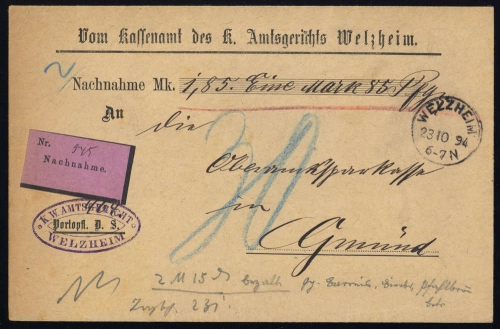 Vom Kassenamt des K. Amtsgerichts Welzheim.
Nachnahme Mk. 1,85. Eine Mark 85 Pfg.
An
die
Oberamtssparkasse
in
Gmünd
WELZHEIM
23 10 94
6-7 N
Nr. 545
Nachnahme.
K. W. AMTSGERICHT
Portopfl. D. S.
WELZHEIM
20
2 M 15 d bezahlt